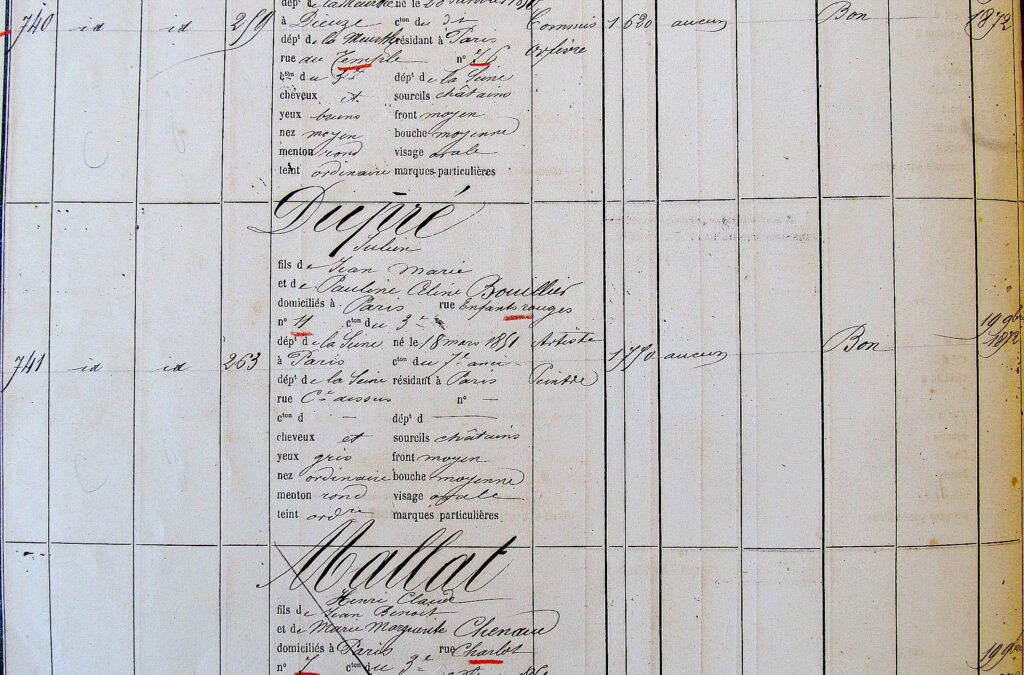 dépt de la Meurthe né le 28
à Dieuze cton du dt
740 id id 259 Commis 1620 aucun Bon 1872
dépt de la Meurthe résidant à Paris orfèvre
rue du Temple n° 16
cton du 3e dépt de la Seine
cheveux et sourcils châtains
yeux bruns front moyen
nez moyen bouche moyenne
menton rond visage ovale
teint ordinaire marques particulières
Dupré
Julien
fils de Jean Marie
et de Pauline Céline Bouillier
domiciliés à Paris rue Enfants rouges
n° 11 cton du 3e
dépt de la Seine né le 18 mars 1851 Artiste 19 9bre 1872
741 id id 263 à Paris cton du 7e anc. 1770 aucun Bon
dépt de la Seine résidant à Paris Peintre
rue Ce dessus n° —
cton d — dépt d —
cheveux et sourcils châtains
yeux gris front moyen
nez ordinaire bouche moyenne
menton rond visage ovale
teint ordre marques particulières
Mallat
Henri Claude
fils de Jean Benoit
et de Marie Marguerite
domiciliés à Paris rue Charlot 19 9bre
n° 7 cton du 3e